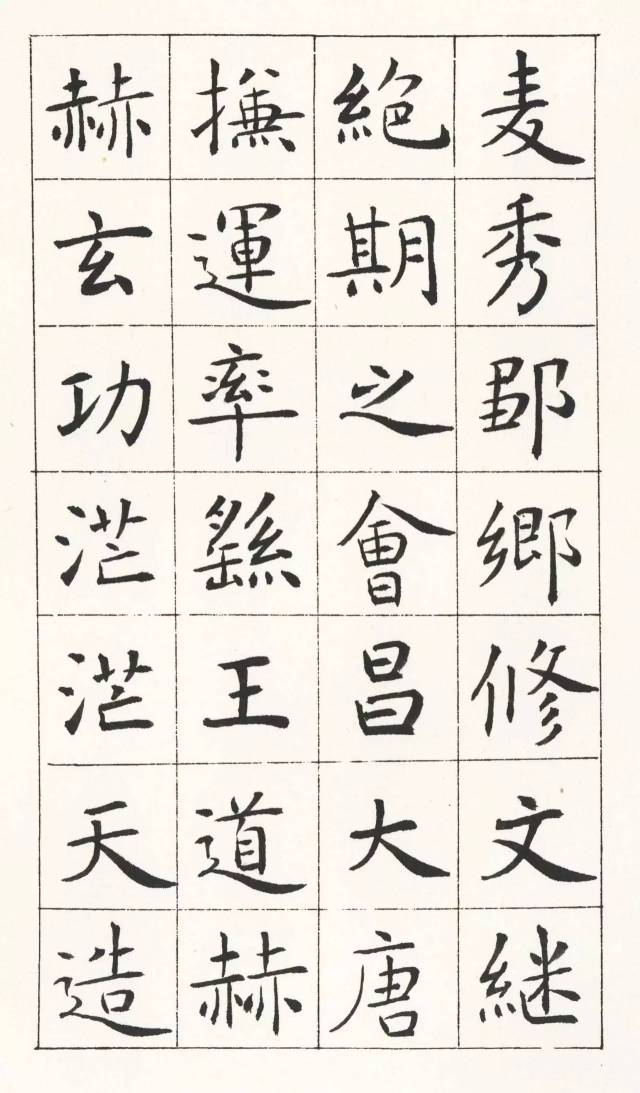 麦秀鄒鄉修文継
絶期之會昌大唐
撫運率繇王道赫
赫玄功茫茫天造